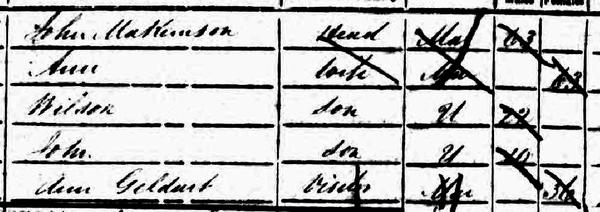 John Makinson Head Mar 63
Ann Wife Mar 63
Wilson son U 22
John son U 10
Ann Geldart Visitor Mar 36